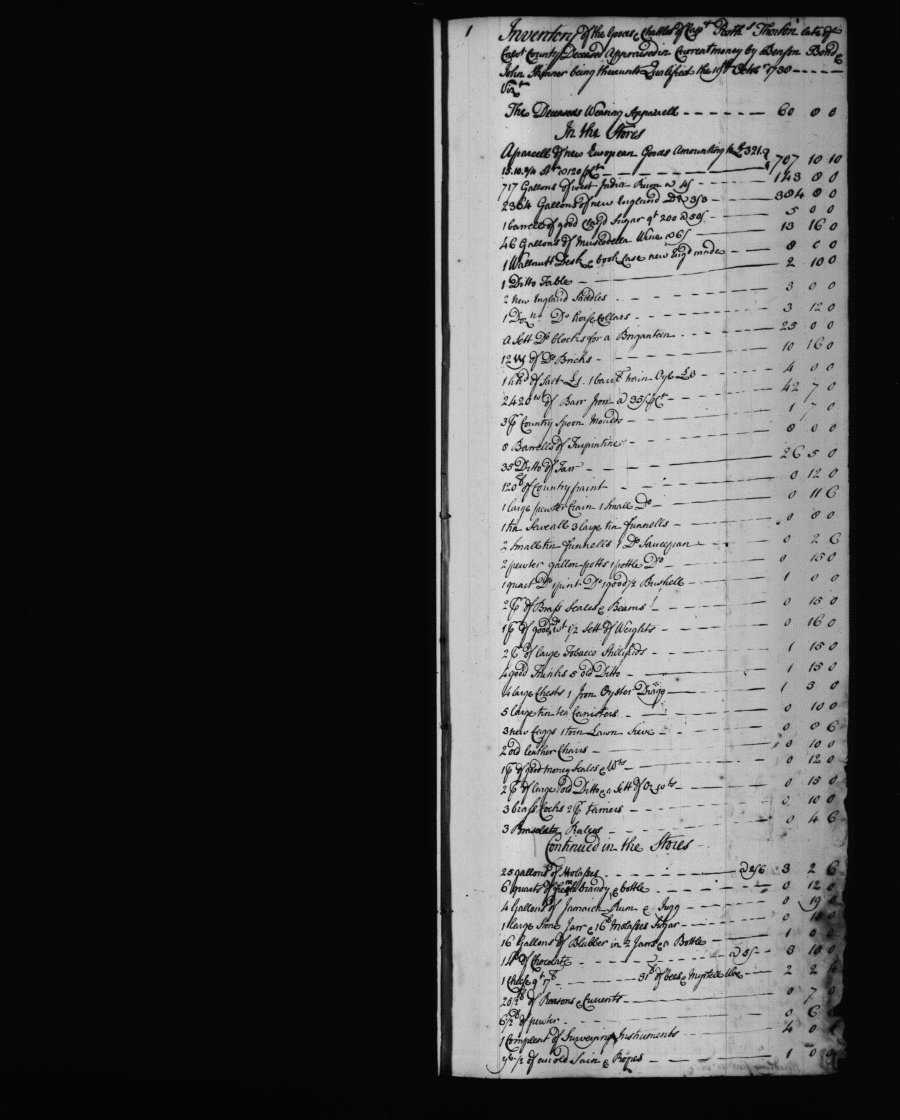 1
Inventory of the Goods Chattles of Capt. Thorton late of
County Deceased Appraised in Current money by Benson Bond &
John Skinner being thereunto Qualified the 1730
Vizt
The Deceaseds Wearing Apparell 60 0 0
In the Stores
A parcell of new European Goods Amounting to £321.
707 10 10
717 Gallons of west India Rum @ 4/ 143 8 0
2304 Gallons of new England Do 384 0 0
1 barrell of good Clayd Sugar qt 200 @ 50/ 5 0 0
46 Gallons of Muscodella Wine @ 6/ 13 16 0
1 Wallnutt Desk & book Case new Engd made 8 0 0
1 Ditto Table 2 10 0
2 New England Saddles 3 0 0
1 Dozn. Do horse Collars 3 12 0
a Sett Do blocks for a Briganteen 25 0 0
of Do Bricks 10 16 0
1 hhd of Salt £1. 1 barrl train Oyl £3 4 0 0
2420 wt of Barr Iron @ 35/ pct 42 7 0
3 pr Country Spoon Moulds 1 7 0
8 Barrells of Turpintine 8 0 0
35 Ditto of Tarr 26 5 0
120 lb of Country paint 0 12 0
1 large pewter 1 Small Do 0 11 6
1 tin 3 large tin funnells 0 8 0
2 Small tin funnells 1 Do Saucepan 0 2 6
2 pewter gallon potts 1 pottle Do 0 15 0
1 quart Do 1 pint Do 1 good ½ Bushell 1 0 0
2 pr of Brass Scales & Beams 0 15 0
1 pr of good 1½ Sett of Weights 0 16 0
2 pr of large Tobacco Stilliards 1 15 0
4 good Trunks 5 old Ditto 1 15 0
4 large Chests 1 Iron Oyster Dragg 1 5 0
5 large tin tea Canisters 0 10 0
3 new Caggs 1 torn Lawn Sieve 0 8 6
2 old leather Chairs 0 10 0
1 pr of good money Scales & Wts 0 12 0
2 pr of large old Ditto & a Sett of Oz wts 0 15 0
3 brass Cocks 2 pr 0 10 0
3 Rulers 0 4 6
Continued in the Stores
25 gallons of Molasses @ 2/6 3 2 6
6 quarts of french brandy & bottle 0 12 0
4 Gallons of Jamaica Rum & Jugg 0 19
1 large Stone Jarr & 16 lb Molasses Sugar 0 10
16 Gallons of Blubber in 2 Jarrs & a Bottle 1 0
14 lb of Chocolate @ 5/ 3 10 0
1 Cheese qt 17 lb 31 lb of bees & Myrtell Wax 2 2
lb of Reasons & Currents 0 7
6½ lb of pewter 0 6
1 Compleat of Surveying Instruments 4 0
½ of an old Sain & Ropes 1 0